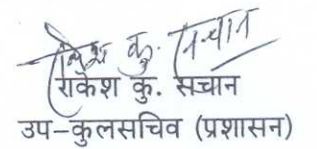 राकेश कु. सचान
राकेश कु. सचान
उप-कुलसचिव (प्रशासन)